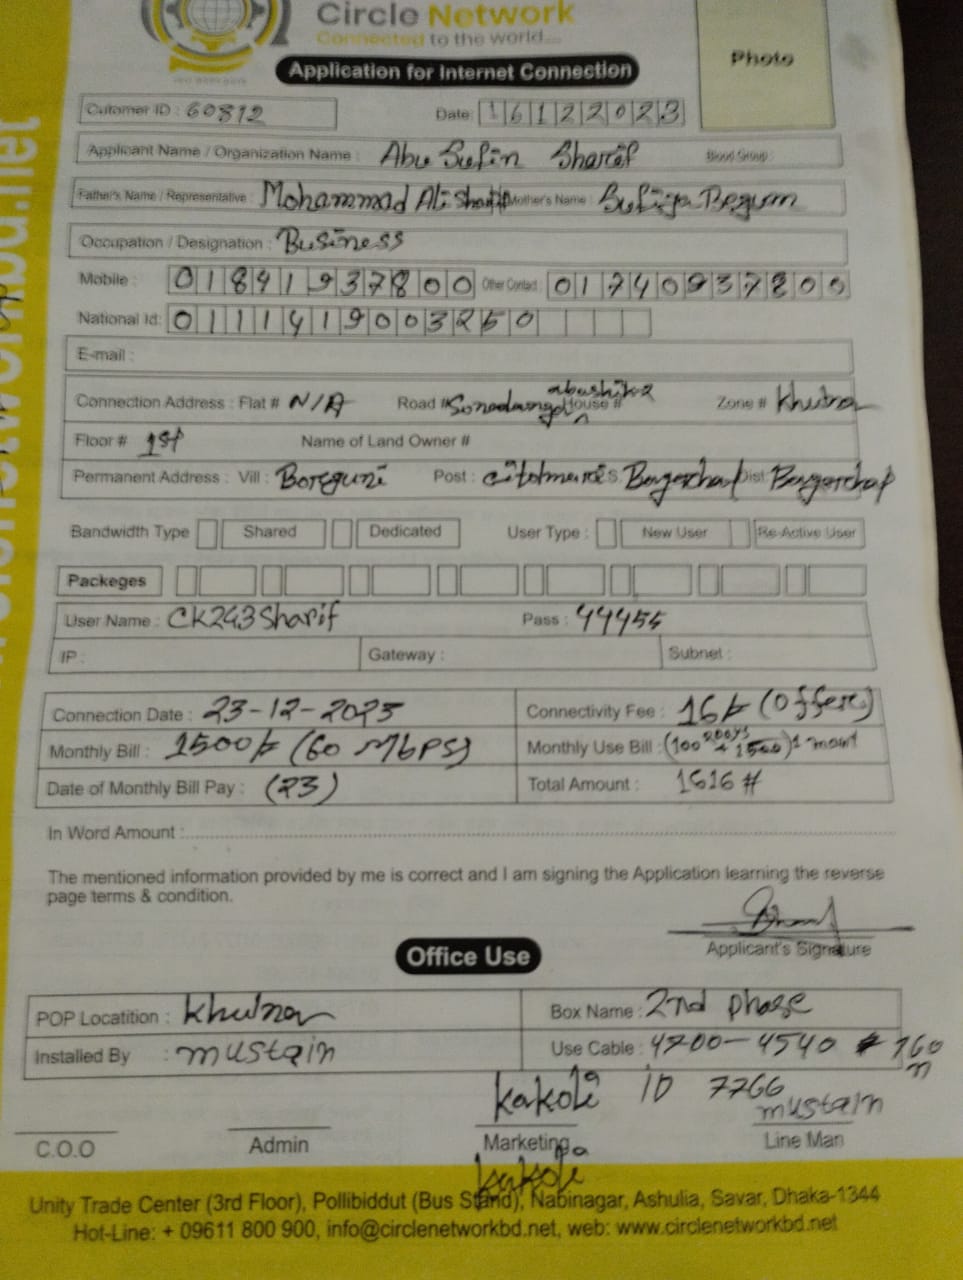 Circle Network
Connected to the world....
Photo
Application for Internet Connection
Cutomer ID : 60812 Date: 16122023
Applicant Name / Organization Name : Abu Sufin Sharif Blood Group :
Father's Name / Representative : Mohammad Ali Sharif Mother's Name : Sufiya Begum
Occupation / Designation : Business
Mobile : 01841937800 Other Contact : 01740937800
National Id: 0111419003250
E-mail :
Connection Address : Flat # N/A Road # Sonadanga abashik House # Zone # Khulna
Floor # 1st Name of Land Owner #
Permanent Address : Vill : Boreguni Post : Dist:
Bandwidth Type Shared Dedicated User Type : New User Re-Active User
Packeges
User Name : CK243Sharif Pass : 44455
IP : Gateway : Subnet :
Connection Date : 23-12-2023 Connectivity Fee : 16/- (Offer)
Monthly Bill : 1500/- (60 Mbps) Monthly Use Bill : (100 + 1500) 1 month
Date of Monthly Bill Pay : (23) Total Amount : 1616 #
In Word Amount :
The mentioned information provided by me is correct and I am signing the Application learning the reverse
page terms & condition.
Applicant's Signature
Office Use
POP Locatition : Khulna Box Name : 2nd phase
Installed By : mustain Use Cable : 4700-4540 160 m
kakoli ID 7766 mustain
C.O.O Admin Marketing Line Man
kakoli
Unity Trade Center (3rd Floor), Pollibiddut (Bus Stand), Nabinagar, Ashulia, Savar, Dhaka-1344
Hot-Line: + 09611 800 900, info@circlenetworkbd.net, web: www.circlenetworkbd.net